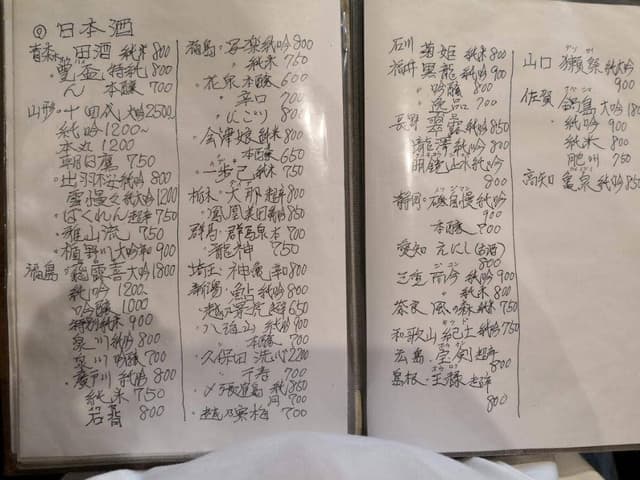 ◎日本酒
青森・田酒 純米 800
・豊盃 特純 800
ん 本醸 700
山形・十四代 大吟 2500
純吟 1200~
本丸 1200
朝日鷹 750
・出羽桜 純吟 800
雪漫々 大吟 1200
・ばくれん 超辛 750
・雅山流 750
・楯野川 大吟 900
福島・飛露喜 大吟 1800
純吟 1200
吟醸 1000
特別純米 900
・泉川 純吟 800
泉川 吟醸 700
・廣戸川 純吟 800
純米 750
800
福島・写楽 純吟 800
〃 純米 750
・花泉 本醸 600
〃 辛口 700
〃 にごり 800
・会津娘 純米 800
〃 本醸 650
・一歩己 純米 750
栃木・大那 超辛 800
・鳳凰美田 純吟 850
群馬・群馬泉 本 700
・龍神 750
埼玉・神亀 辛 800
新潟・鮎 純吟 800
・越乃景虎 超 650
・八海山 純吟 900
〃 本醸 700
・久保田 洗心 2200
〃 千寿 700
・〆張鶴 純 850
月 700
・越乃寒梅 700
石川 菊姫 純米 800
福井 黒龍 純吟 900
〃 吟醸 800
〃 逸品 700
長野 翠露 純吟 850
純吟 800
明鏡止水 純吟
800
静岡・磯自慢 純吟
900
本醸 700
愛知 えにし(古酒)
800
三重・而今 純吟 900
〃 純米 800
奈良・風の森 純米 750
和歌山 紀土 純吟 750
広島・宝剣 超辛
800
島根・王祿 超辛
800
山口・獺祭 純大吟
900
佐賀・鍋島 大吟 180
・純吟 900
純米 800
肥州 750
高知・亀泉 純吟 850